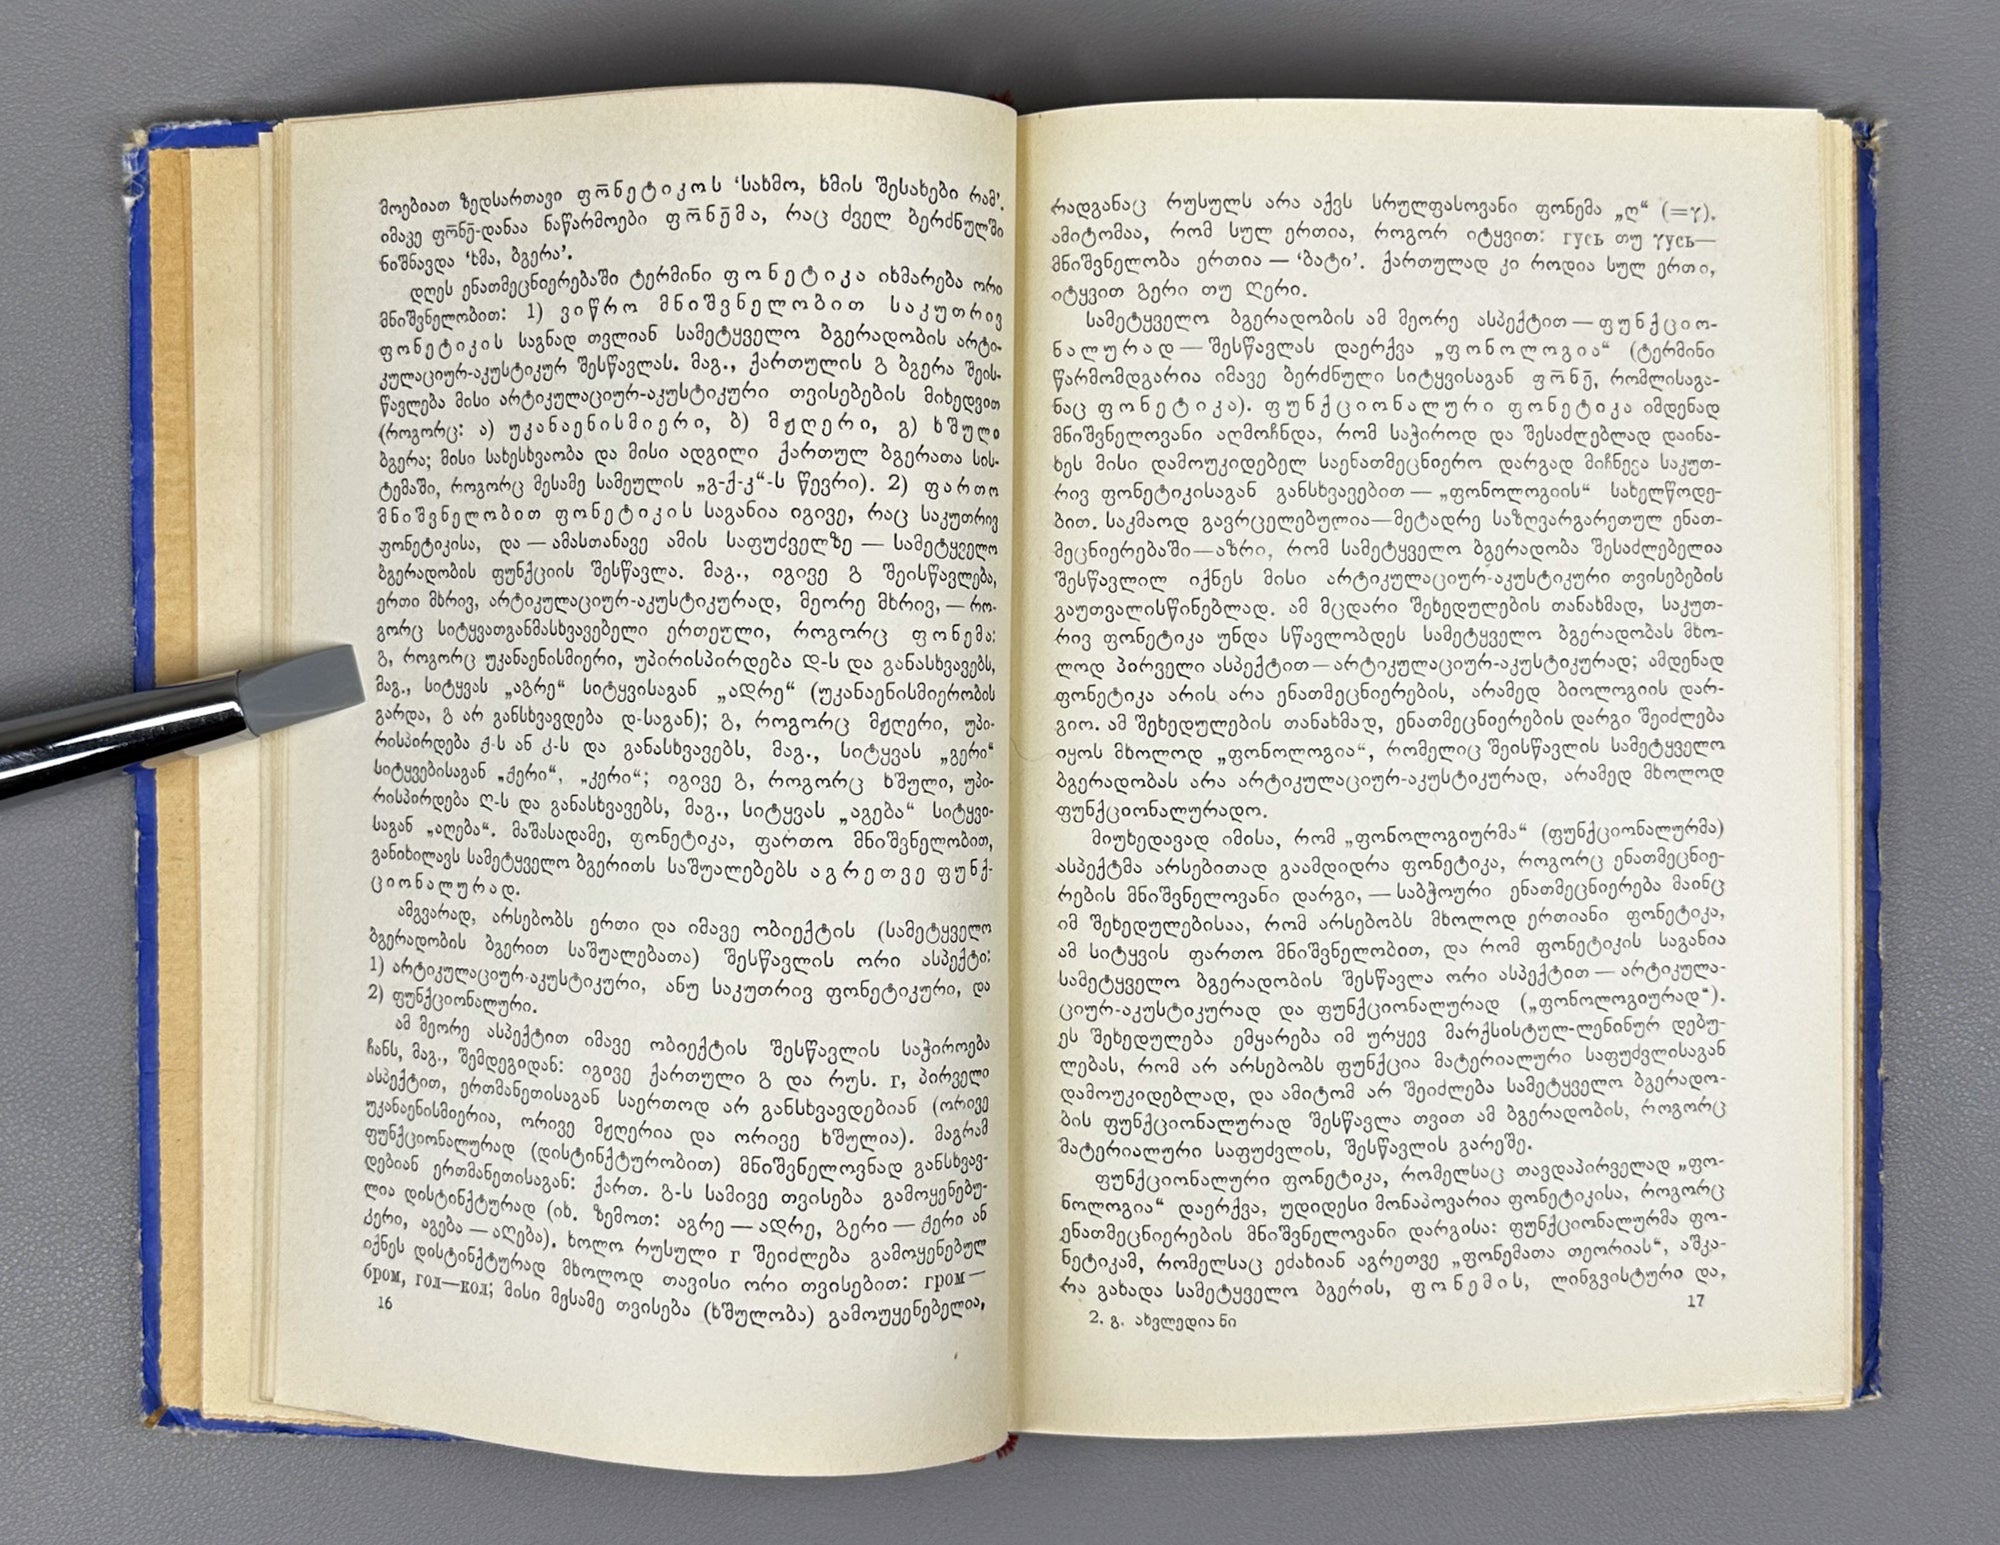 მოებიათ ზედსართავი ფო̄ნეტიკოს ‘სახმო, ხმის შესახები რამ’.
იმავე ფო̄ნე̄-დანაა ნაწარმოები ფო̄ნე̄მა, რაც ძველ ბერძნულში
ნიშნავდა ‘ხმა, ბგერა’.
დღეს ენათმეცნიერებაში ტერმინი ფონეტიკა იხმარება ორი
მნიშვნელობით: 1) ვიწრო მნიშვნელობით საკუთრივ
ფონეტიკის საგნად თვლიან სამეტყველო ბგერადობის არტი-
კულაციურ-აკუსტიკურ შესწავლას. მაგ., ქართულის გ ბგერა შეის-
წავლება მისი არტიკულაციურ-აკუსტიკური თვისებების მიხედვით
(როგორც: ა) უკანაენისმიერი, ბ) მჟღერი, გ) ხშული
ბგერა; მისი სახესხვაობა და მისი ადგილი ქართულ ბგერათა სის-
ტემაში, როგორც მესამე სამეულის „გ-ქ-კ“-ს წევრი). 2) ფართო
მნიშვნელობით ფონეტიკის საგანია იგივე, რაც საკუთრივ
ფონეტიკისა, და — ამასთანავე ამის საფუძველზე — სამეტყველო
ბგერადობის ფუნქციის შესწავლა. მაგ., იგივე გ შეისწავლება,
ერთი მხრივ, არტიკულაციურ-აკუსტიკურად, მეორე მხრივ, — რო-
გორც სიტყვათგანმასხვავებელი ერთეული, როგორც ფონემა:
გ, როგორც უკანაენისმიერი, უპირისპირდება დ-ს და განასხვავებს,
მაგ., სიტყვას „აგრე“ სიტყვისაგან „ადრე“ (უკანაენისმიერობის
გარდა, გ არ განსხვავდება დ-საგან); გ, როგორც მჟღერი, უპი-
რისპირდება ქ-ს ან კ-ს და განასხვავებს, მაგ., სიტყვას „გერი“
სიტყვებისაგან „ქერი“, „კერი“; იგივე გ, როგორც ხშული, უპი-
რისპირდება ღ-ს და განასხვავებს, მაგ., სიტყვას „აგება“ სიტყვი-
საგან „აღება“. მაშასადამე, ფონეტიკა, ფართო მნიშვნელობით,
განიხილავს სამეტყველო ბგერითს საშუალებებს აგრეთვე ფუნქ-
ციონალურად.
ამგვარად, არსებობს ერთი და იმავე ობიექტის (სამეტყველო
ბგერადობის ბგერით საშუალებათა) შესწავლის ორი ასპექტი:
1) არტიკულაციურ-აკუსტიკური, ანუ საკუთრივ ფონეტიკური, და
2) ფუნქციონალური.
ამ მეორე ასპექტით იმავე ობიექტის შესწავლის საჭიროება
ჩანს, მაგ., შემდეგიდან: იგივე ქართული გ და რუს. г, პირველი
ასპექტით, ერთმანეთისაგან საერთოდ არ განსხვავდებიან (ორივე
უკანაენისმიერია, ორივე მჟღერია და ორივე ხშულია). მაგრამ
ფუნქციონალურად (დისტინქტურობით) მნიშვნელოვნად განსხვავ-
დებიან ერთმანეთისაგან: ქართ. გ-ს სამივე თვისება გამოყენებუ-
ლია დისტინქტურად (იხ. ზემოთ: აგრე — ადრე, გერი — ქერი ან
კერი, აგება — აღება). ხოლო რუსული г შეიძლება გამოყენებულ
იქნეს დისტინქტურად მხოლოდ თავისი ორი თვისებით: гром —
бром, гол—кол; მისი მესამე თვისება (ხშულობა) გამოუყენებელია,
16
რადგანაც რუსულს არა აქვს სრულფასოვანი ფონემა „ღ“ (=γ).
ამიტომაა, რომ სულ ერთია, როგორ იტყვით: гусь თუ γусь—
მნიშვნელობა ერთია — ‘ბატი’. ქართულად კი როდია სულ ერთი,
იტყვით გერი თუ ღერი.
სამეტყველო ბგერადობის ამ მეორე ასპექტით — ფუნქციო-
ნალურად — შესწავლას დაერქვა „ფონოლოგია“ (ტერმინი
წარმომდგარია იმავე ბერძნული სიტყვისაგან ფო̄ნე̄, რომლისაგა-
ნაც ფონეტიკა). ფუნქციონალური ფონეტიკა იმდენად
მნიშვნელოვანი აღმოჩნდა, რომ საჭიროდ და შესაძლებლად დაინა-
ხეს მისი დამოუკიდებელ საენათმეცნიერო დარგად მიჩნევა საკუთ-
რივ ფონეტიკისაგან განსხვავებით — „ფონოლოგიის“ სახელწოდე-
ბით. საკმაოდ გავრცელებულია—მეტადრე საზღვარგარეთულ ენათ-
მეცნიერებაში—აზრი, რომ სამეტყველო ბგერადობა შესაძლებელია
შესწავლილ იქნეს მისი არტიკულაციურ-აკუსტიკური თვისებების
გაუთვალისწინებლად. ამ მცდარი შეხედულების თანახმად, საკუთ-
რივ ფონეტიკა უნდა სწავლობდეს სამეტყველო ბგერადობას მხო-
ლოდ პირველი ასპექტით—არტიკულაციურ-აკუსტიკურად; ამდენად
ფონეტიკა არის არა ენათმეცნიერების, არამედ ბიოლოგიის დარ-
გიო. ამ შეხედულების თანახმად, ენათმეცნიერების დარგი შეიძლება
იყოს მხოლოდ „ფონოლოგია“, რომელიც შეისწავლის სამეტყველო
ბგერადობას არა არტიკულაციურ-აკუსტიკურად, არამედ მხოლოდ
ფუნქციონალურადო.
მიუხედავად იმისა, რომ „ფონოლოგიურმა“ (ფუნქციონალურმა)
ასპექტმა არსებითად გაამდიდრა ფონეტიკა, როგორც ენათმეცნიე-
რების მნიშვნელოვანი დარგი, — საბჭოური ენათმეცნიერება მაინც
იმ შეხედულებისაა, რომ არსებობს მხოლოდ ერთიანი ფონეტიკა,
ამ სიტყვის ფართო მნიშვნელობით, და რომ ფონეტიკის საგანია
სამეტყველო ბგერადობის შესწავლა ორი ასპექტით — არტიკულა-
ციურ-აკუსტიკურად და ფუნქციონალურად („ფონოლოგიურად“).
ეს შეხედულება ემყარება იმ ურყევ მარქსისტულ-ლენინურ დებუ-
ლებას, რომ არ არსებობს ფუნქცია მატერიალური საფუძვლისაგან
დამოუკიდებლად, და ამიტომ არ შეიძლება სამეტყველო ბგერადო-
ბის ფუნქციონალურად შესწავლა თვით ამ ბგერადობის, როგორც
მატერიალური საფუძვლის, შესწავლის გარეშე.
ფუნქციონალური ფონეტიკა, რომელსაც თავდაპირველად „ფო-
ნოლოგია“ დაერქვა, უდიდესი მონაპოვარია ფონეტიკისა, როგორც
ენათმეცნიერების მნიშვნელოვანი დარგისა: ფუნქციონალურმა ფო-
ნეტიკამ, რომელსაც ეძახიან აგრეთვე „ფონემათა თეორიას“, აშკა-
რა გახადა სამეტყველო ბგერის, ფონემის, ლინგვისტური და,
17
2. გ. ახვლედიანი